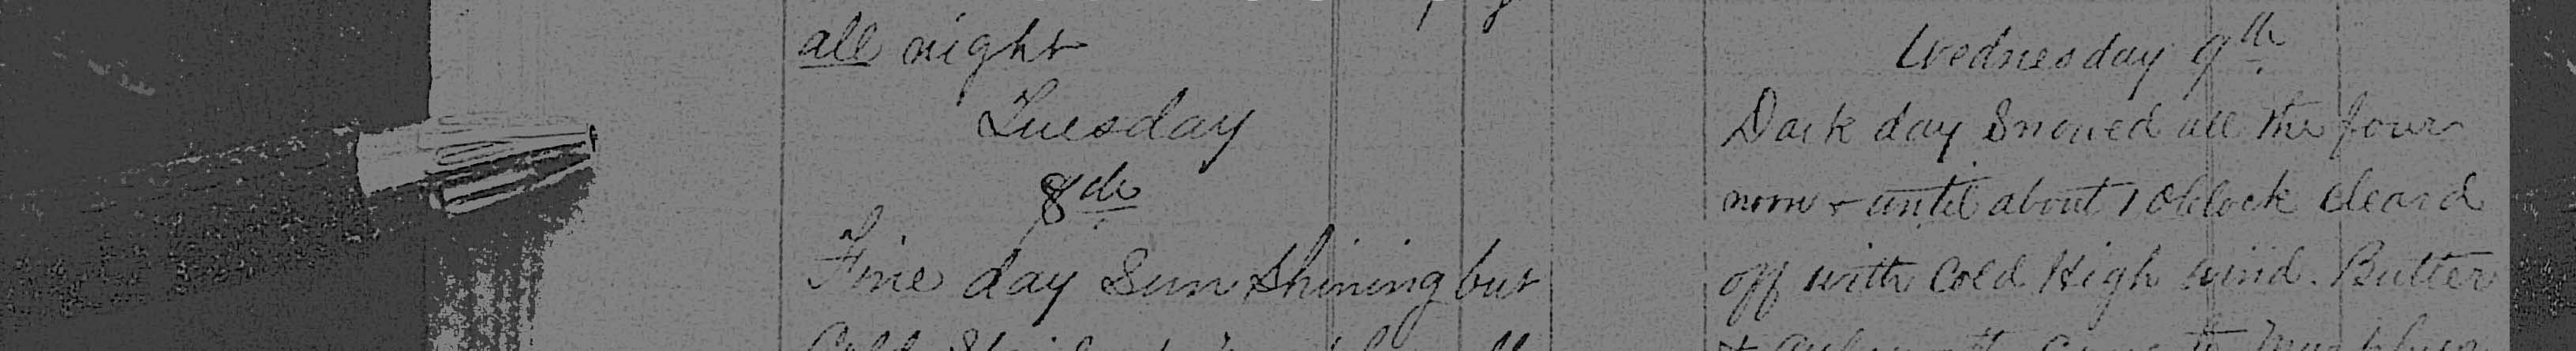 all night
Tuesday
8th
Fine day Sun Shining but
Cold
Wednesday 9th
Dark day Snowed all the four
noon + until about 1 Oclock Cleard
off with Cold High wind. Butter